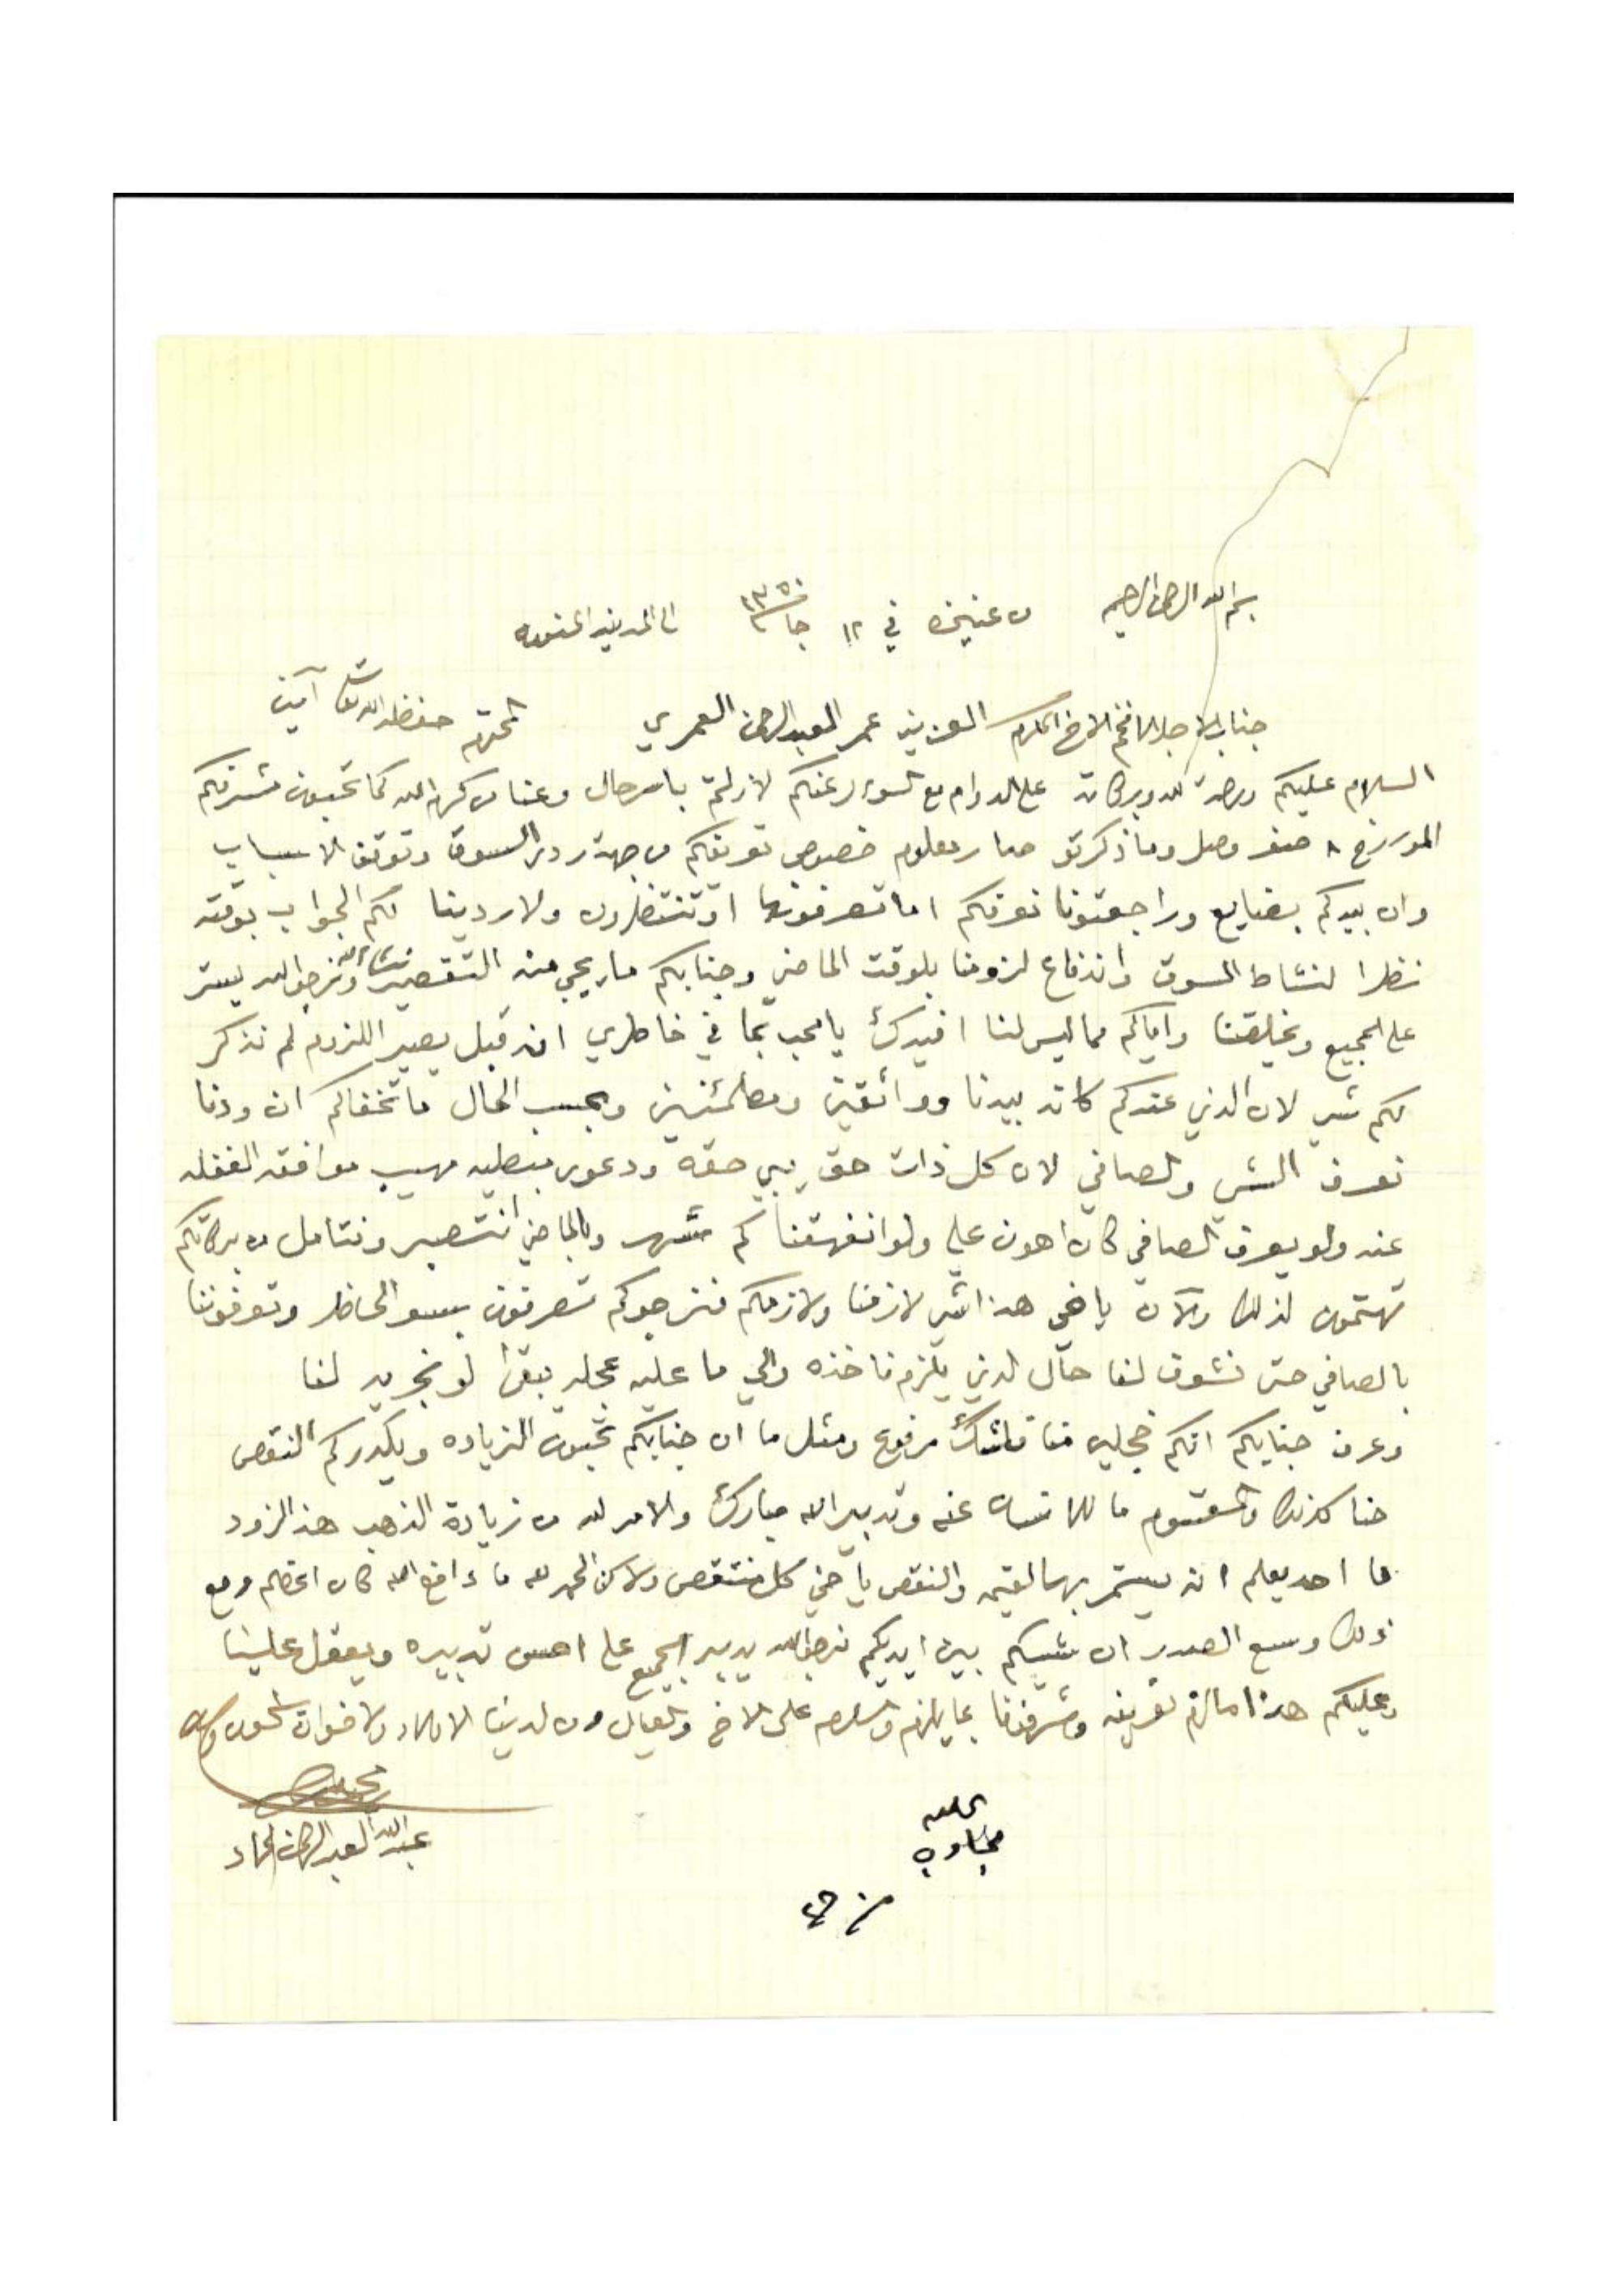 بسم الله الرحمن الرحيم من عنيزه في ١٢ جا ١٣٥٠ الى المدينه المنوره
جناب الاجل الافخم الاخ المكرم العزيز عمر العبدالرحمن العمري المحترم حفظه الله تعالى آمين
السلام عليكم ورحمة الله وبركاته على الدوام مع السوال عنكم لازلتم باسر حال وعنا من كرم الله كما تحبون مشرفكم
المورخ ٨ صفر وصل وما ذكرتو صار معلوم خصوص تعريفكم من جهة ردى السوق وتوقف الاسباب
وان بيدكم بضايع وراجعتونا نعرفكم اما تصرفونها او تنتظرون ولا ردينا لكم الجواب بوقته
نظرا لنشاط السوق واندفاع لزومنا بلوقت الماضي وجنابكم ما يجي منه التقصير انشاءالله ونرجو الله يستر
على الجميع ويخلصنا واياكم مما ليس لنا افيدك يا محب بما في خاطري انه قبل يصير اللزوم لم نذكر
لكم شي لان الذي عندكم كانه بيدنا وواثقين ومطمئنين وبحسب الحال ما تخفاكم ان ودنا
نعرف الشي والصافي لان كل ذات حق يبي حقه ودعوى مبطيه مهيب موافقه الغفله
عنه ولو يعرف الصافي كان اهون علي ولو انفهقنا كم شهر وبالماضي انتصبر ونتامل من بركاتكم
تهتمون لذلك والآن ياخي هذا شي لازمنا ولازمكم فنرجوكم تصرفون بسو الحاضر وتعرفوننا
بالصافي حتى نشوف لنا حال الذي يلزم ناخذه والي ما عليه عجله يبقى لو نجريه لنا
وعرف جنابكم انكم خجلين منا فلشك مرفوع ومثل ما ان جنابكم تحبون الزياده ويكدركم النقص
حنا كذلك والمقسوم ما للانسان عنه وتدبير الله مبارك والامر لله من زيادة الذهب هذ الزود
ما احد يعلم انه يستمر بهالقيمه والنقص ياخي كل منتقص ولاكن الحمد لله ما دافع الله كان اعظم ومع
ذلك وسع الصدر ان شيبكم بين ايديكم نرجو الله يدبر الجميع على احسن تدبيره ويعقل علينا
وعليكم هذا مالزم تعريفه وشرفونا بما يلزم والسلام على الاخ والعيال ومن لدينا الاولاد والاخوان يسلمون والسلام
محبكم
عبدالله العبدالرحمن الحماد